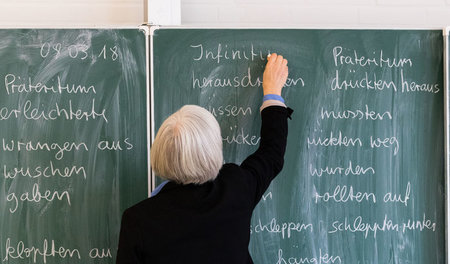 09.03.18
Präteritum
erleichterte
wrangen aus
wuschen
gaben
klopften au
Infinitiv
üssen
rücken
chleppen
Präteritum
drückten heraus
mussten
ückten weg
wurden
rollten auf
schleppten runter